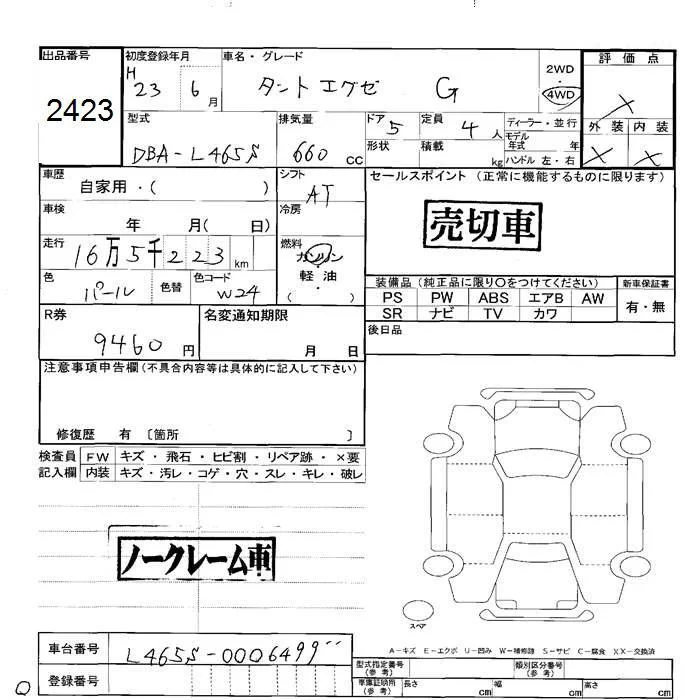 出品番号 初度登録年月 車名・グレード 2WD 評価点
2423 H 23 6月 タントエグゼ G 4WD X
外装 内装
型式 排気量 ドア 5 定員 4人 ディーラー・並行
DBA-L465S 660 CC 形状 積載 kg モデル年式 年 X X
ハンドル 左・右
車歴 シフト セールスポイント (正常に機能するものに限ります)
自家用・( ) AT
車検 冷房 売切車
年 月( 日)
走行 燃料
16万5千223km ガソリン
軽油
・
( )
色 色替 色コード 装備品 (純正品に限り〇をつけてください) 新車保証書
パール W24 PS PW ABS エアB AW 有・無
SR ナビ TV カワ
R券 名変通知期限 後日品
9460円 月 日
注意事項申告欄 (不具合内容等は具体的に記入して下さい)
修復歴 有 〔箇所 〕
検査員 FW キズ・飛石・ヒビ割・リペア跡・×要
記入欄 内装 キズ・汚レ・コゲ・穴・スレ・キレ・破レ
ノークレーム車
スペア
A-キズ E-エクボ U-凹み W-補修跡 S-サビ C-腐食 XX-交換済
車台番号 L465S-0006499 型式指定番号(参考) 類別区分番号(参考)
登録番号 車庫証明用(参考) 長さ cm 幅 cm 高さ cm